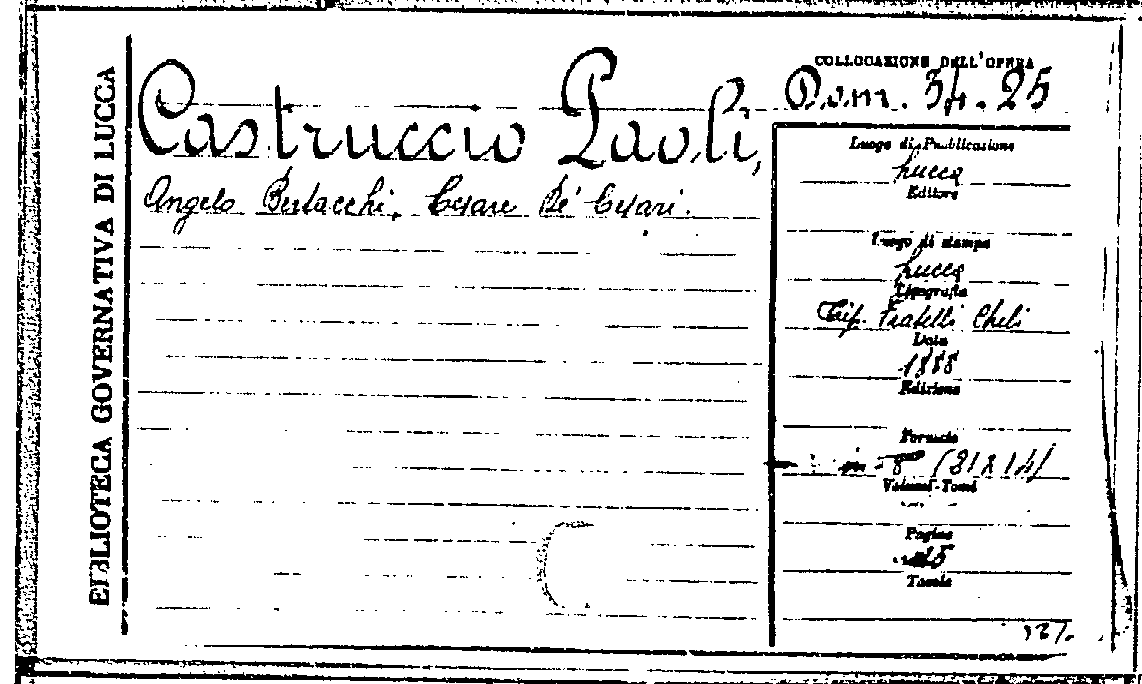 BIBLIOTECA GOVERNATIVA DI LUCCA
Castruccio Paoli,
Angelo Bertacchi, Cesare De' Cesari.
COLLOCAZIONE DELL'OPERA
Dom. 34.25
Luogo di Pubblicazione
Lucca
Editore
Luogo di stampa
Lucca
Tipografia
Tip. Fratelli Cheli
Data
1888
Edizione
Formato
in-8° (21x14)
Volumi-Tomi
Pagine
Tavole